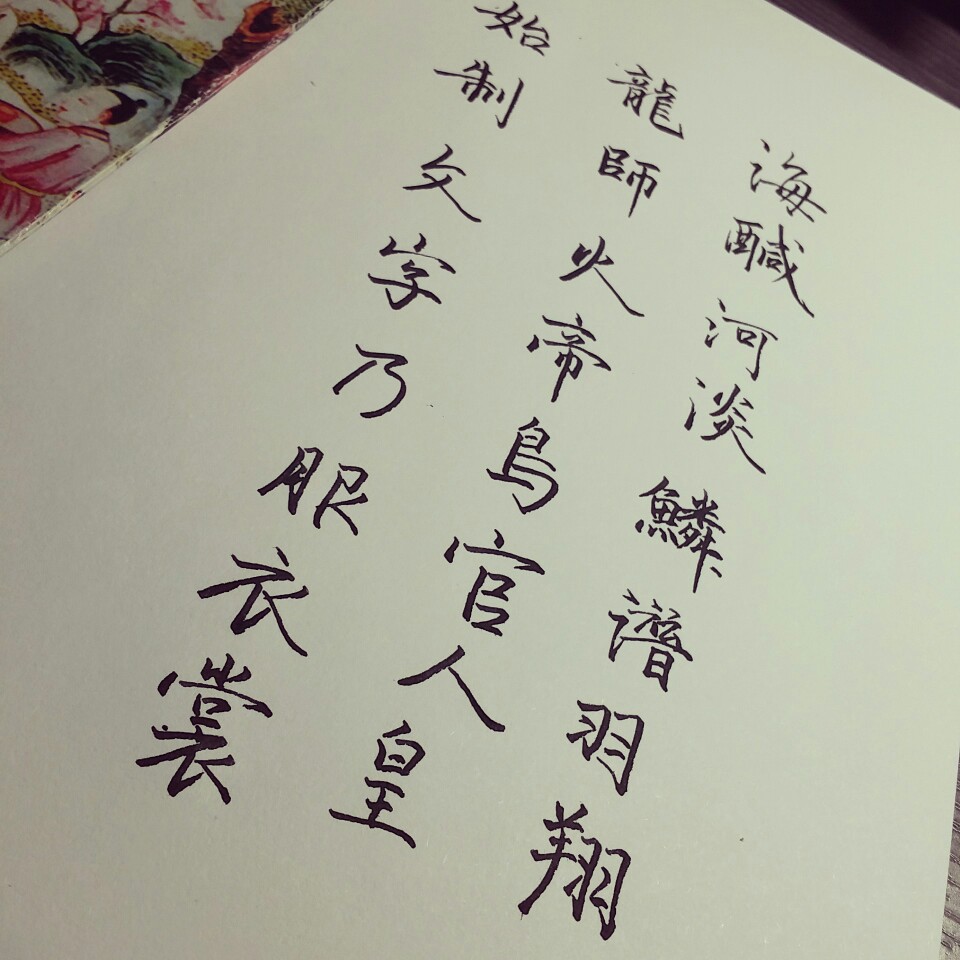 海鹹河淡鱗潛羽翔
龍師火帝鳥官人皇
始制文字乃服衣裳